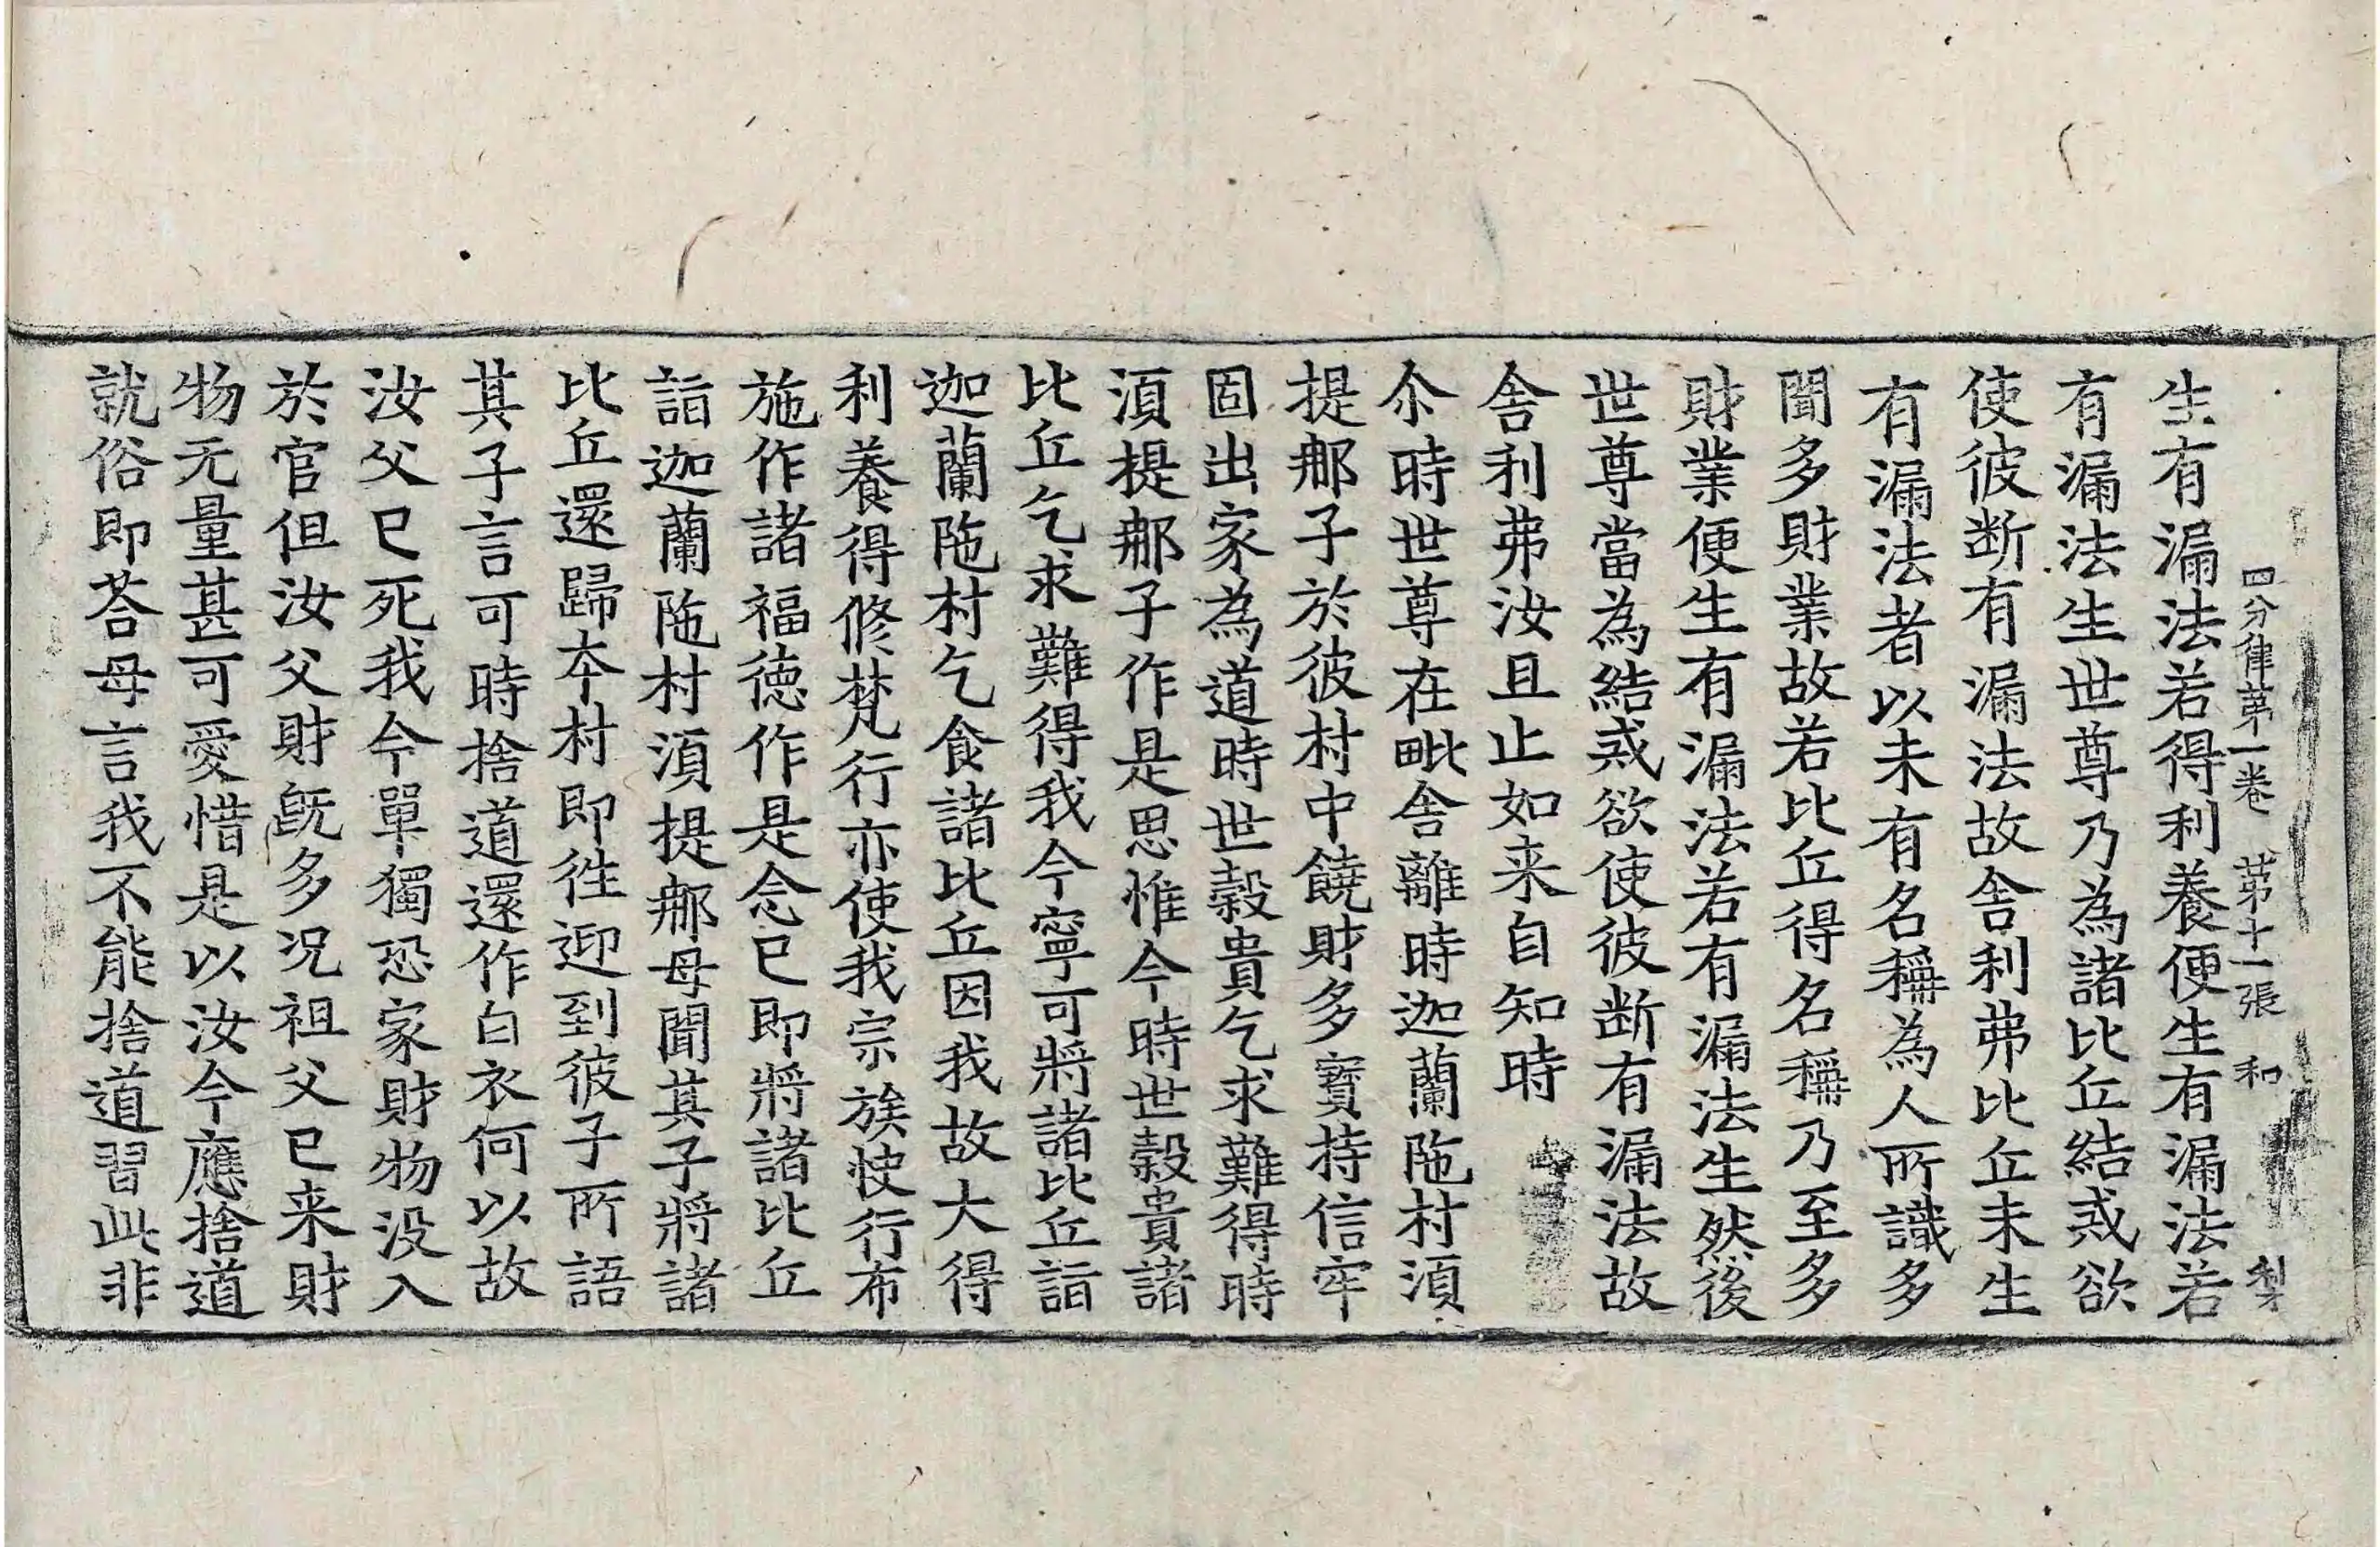 四分律第一卷 第十一張 和
生有漏法若得利養便生有漏法若
有漏法生世尊乃為諸比丘結戒欲
使彼断有漏法故舍利弗比丘未生
有漏法者以未有名稱為人所識多
聞多財業故若比丘得名稱乃至多
財業便生有漏法若有漏法生然後
世尊當為結戒欲使彼断有漏法故
舍利弗汝且止如来自知時
尒時世尊在毗舍離時迦蘭陁村須
提那子於彼村中饒財多寳持信牢
固出家為道時世糓貴乞求難得時
須提那子作是思惟今時世糓貴諸
比丘乞求難得我今寧可將諸比丘詣
迦蘭陁村乞食諸比丘因我故大得
利養得修梵行亦使我宗族快行布
施作諸福德作是念已即將諸比丘
詣迦蘭陁村須提那母聞其子將諸
比丘還歸本村即徃迎到彼子所語
其子言可時捨道還作白衣何以故
汝父已死我今單獨恐家財物没入
於官但汝父財既多况祖父已来財
物无量甚可愛惜是以汝今應捨道
就俗即荅母言我不能捨道習此非